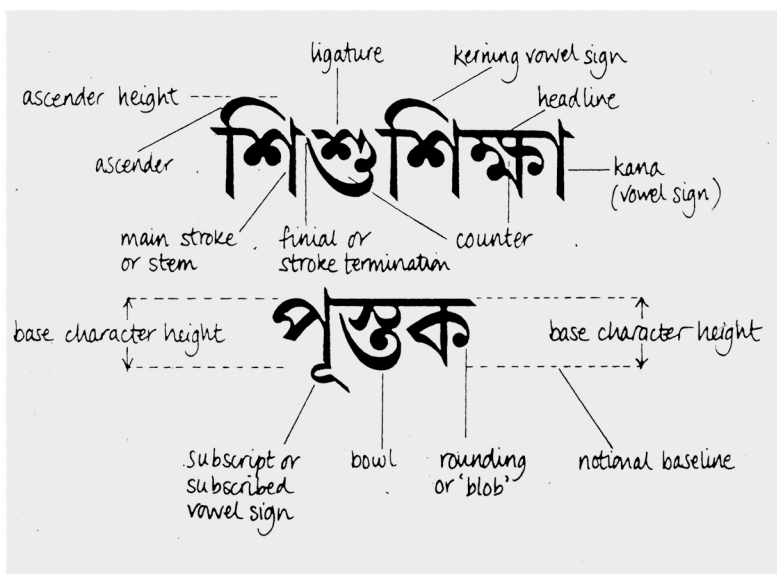 ligature
kerning vowel sign
ascender height
headline
শিশুশিক্ষা
ascender
kana
(vowel sign)
main stroke
or stem
finial or
stroke termination
counter
base character height
পূস্তক
base character height
subscript or
subscribed
vowel sign
bowl
rounding
or 'blob'
notional baseline